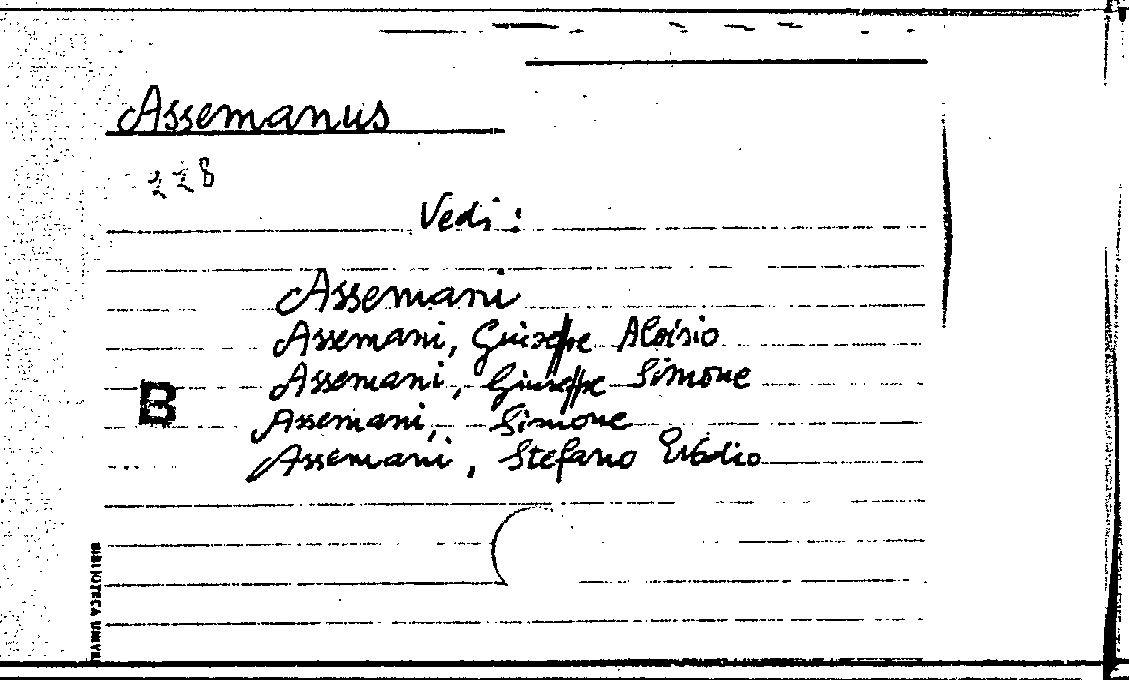 Assemanus
228
Vedi:
Assemani
Assemani, Giuseppe Aloisio
Assemani, Giuseppe Simone
B
Assemani, Simone
Assemani, Stefano
BIBLIOTECA